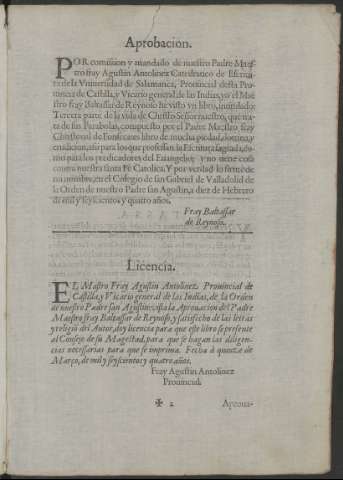 Aprobacion.
POR comission y mandado de nuestro Padre Maes
tro fray Agustin Antolinez Catedratico de Escritu
ra de la Vniuersidad de Salamanca, Prouincial desta Pro
uincia de Castilla, y Vicario general de las Indias, yo el Maes
tro fray Baltassar de Reynoso he visto vn libro, intitulado
Tercera parte de la vida de Christo Señor nuestro, que tra
ta de sus Parabolas, compuesto por el Padre Maestro fray
Christoual de Fonseca: es libro de mucha piedad, dotrina, y
erudicion, assi para los que professan la Escritura sagrada, co-
mo para los predicadores del Euangelio, y no tiene cosa
contra nuestra santa Fe Catolica. Y por verdad lo firmè de
mi nombre, en el Colegio de san Gabriel de Valladolid de
la Orden de nuestro Padre san Agustin, a diez de Hebrero
de mil y seyscientos y quatro años.
Fray Baltassar
de Reynoso.
Licencia.
EL Maestro Fray Agustin Antolinez Prouincial de
Castilla, y Vicario general de las Indias, de la Orden
de nuestro Padre san Agustin: vista la Aprouacion del Padre
Maestro fray Baltassar de Reynoso, y satisfecho de las letras
y religiō del Autor, doy licencia para que este libro se presente
al Consejo de su Magestad, para que se hagan las diligen-
cias necessarias para que se imprima. Fecha à quinze de
Março, de mil y seyscientos y quatro años.
Fray Agustin Antolinez
Prouincial.
✠ 2 Aproua-